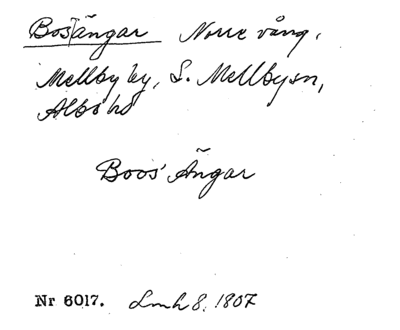 Bos|ängar Norre vång,
Mellby by, S. Mellby sn,
Albo hd
Boos' Ängar
Nr 6017. Lmh 8, 1807